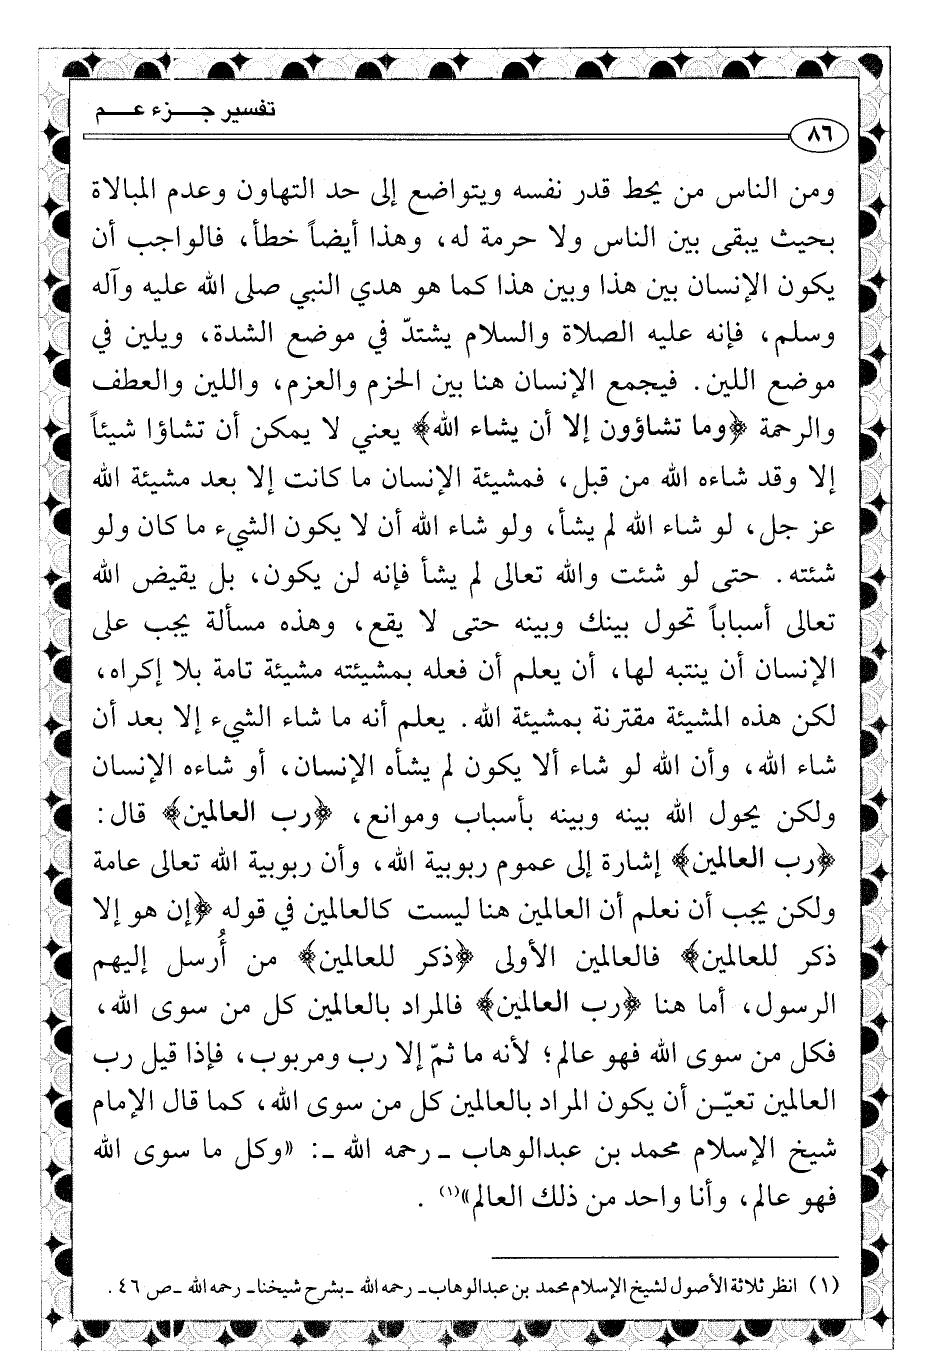 تفسير جـــزء عـــم
٨٦
ومن الناس من يحط قدر نفسه ويتواضع إلى حد التهاون وعدم المبالاة
بحيث يبقى بين الناس ولا حرمة له، وهذا أيضاً خطأ، فالواجب أن
يكون الإنسان بين هذا وبين هذا كما هو هدي النبي صلى الله عليه وآله
وسلم، فإنه عليه الصلاة والسلام يشتدّ في موضع الشدة، ويلين في
موضع اللين. فيجمع الإنسان هنا بين الحزم والعزم، واللين والعطف
والرحمة ﴿وما تشاؤون إلا أن يشاء الله﴾ يعني لا يمكن أن تشاؤا شيئاً
إلا وقد شاءه الله من قبل، فمشيئة الإنسان ما كانت إلا بعد مشيئة الله
عز جل، لو شاء الله لم يشأ، ولو شاء الله أن لا يكون الشيء ما كان ولو
شئته. حتى لو شئت والله تعالى لم يشأ فإنه لن يكون، بل يقيض الله
تعالى أسباباً تحول بينك وبينه حتى لا يقع، وهذه مسألة يجب على
الإنسان أن ينتبه لها، أن يعلم أن فعله بمشيئته مشيئة تامة بلا إكراه،
لكن هذه المشيئة مقترنة بمشيئة الله. يعلم أنه ما شاء الشيء إلا بعد أن
شاء الله، وأن الله لو شاء ألا يكون لم يشأه الإنسان، أو شاءه الإنسان
ولكن يحول الله بينه وبينه بأسباب وموانع، ﴿رب العالمين﴾ قال:
﴿رب العالمين﴾ إشارة إلى عموم ربوبية الله، وأن ربوبية الله تعالى عامة
ولكن يجب أن نعلم أن العالمين هنا ليست كالعالمين في قوله ﴿إن هو إلا
ذكر للعالمين﴾ فالعالمين الأولى ﴿ذكر للعالمين﴾ من أُرسل إليهم
الرسول، أما هنا ﴿رب العالمين﴾ فالمراد بالعالمين كل من سوى الله،
فكل من سوى الله فهو عالم؛ لأنه ما ثمّ إلا رب ومربوب، فإذا قيل رب
العالمين تعيّـن أن يكون المراد بالعالمين كل من سوى الله، كما قال الإمام
شيخ الإسلام محمد بن عبدالوهاب ـ رحمه الله ـ: «وكل ما سوى الله
فهو عالم، وأنا واحد من ذلك العالم»(١) .
(١) انظر ثلاثة الأصول لشيخ الإسلام محمد بن عبدالوهاب ـ رحمه الله ـ بشرح شيخنا ـ رحمه الله ـ ص ٤٦ .